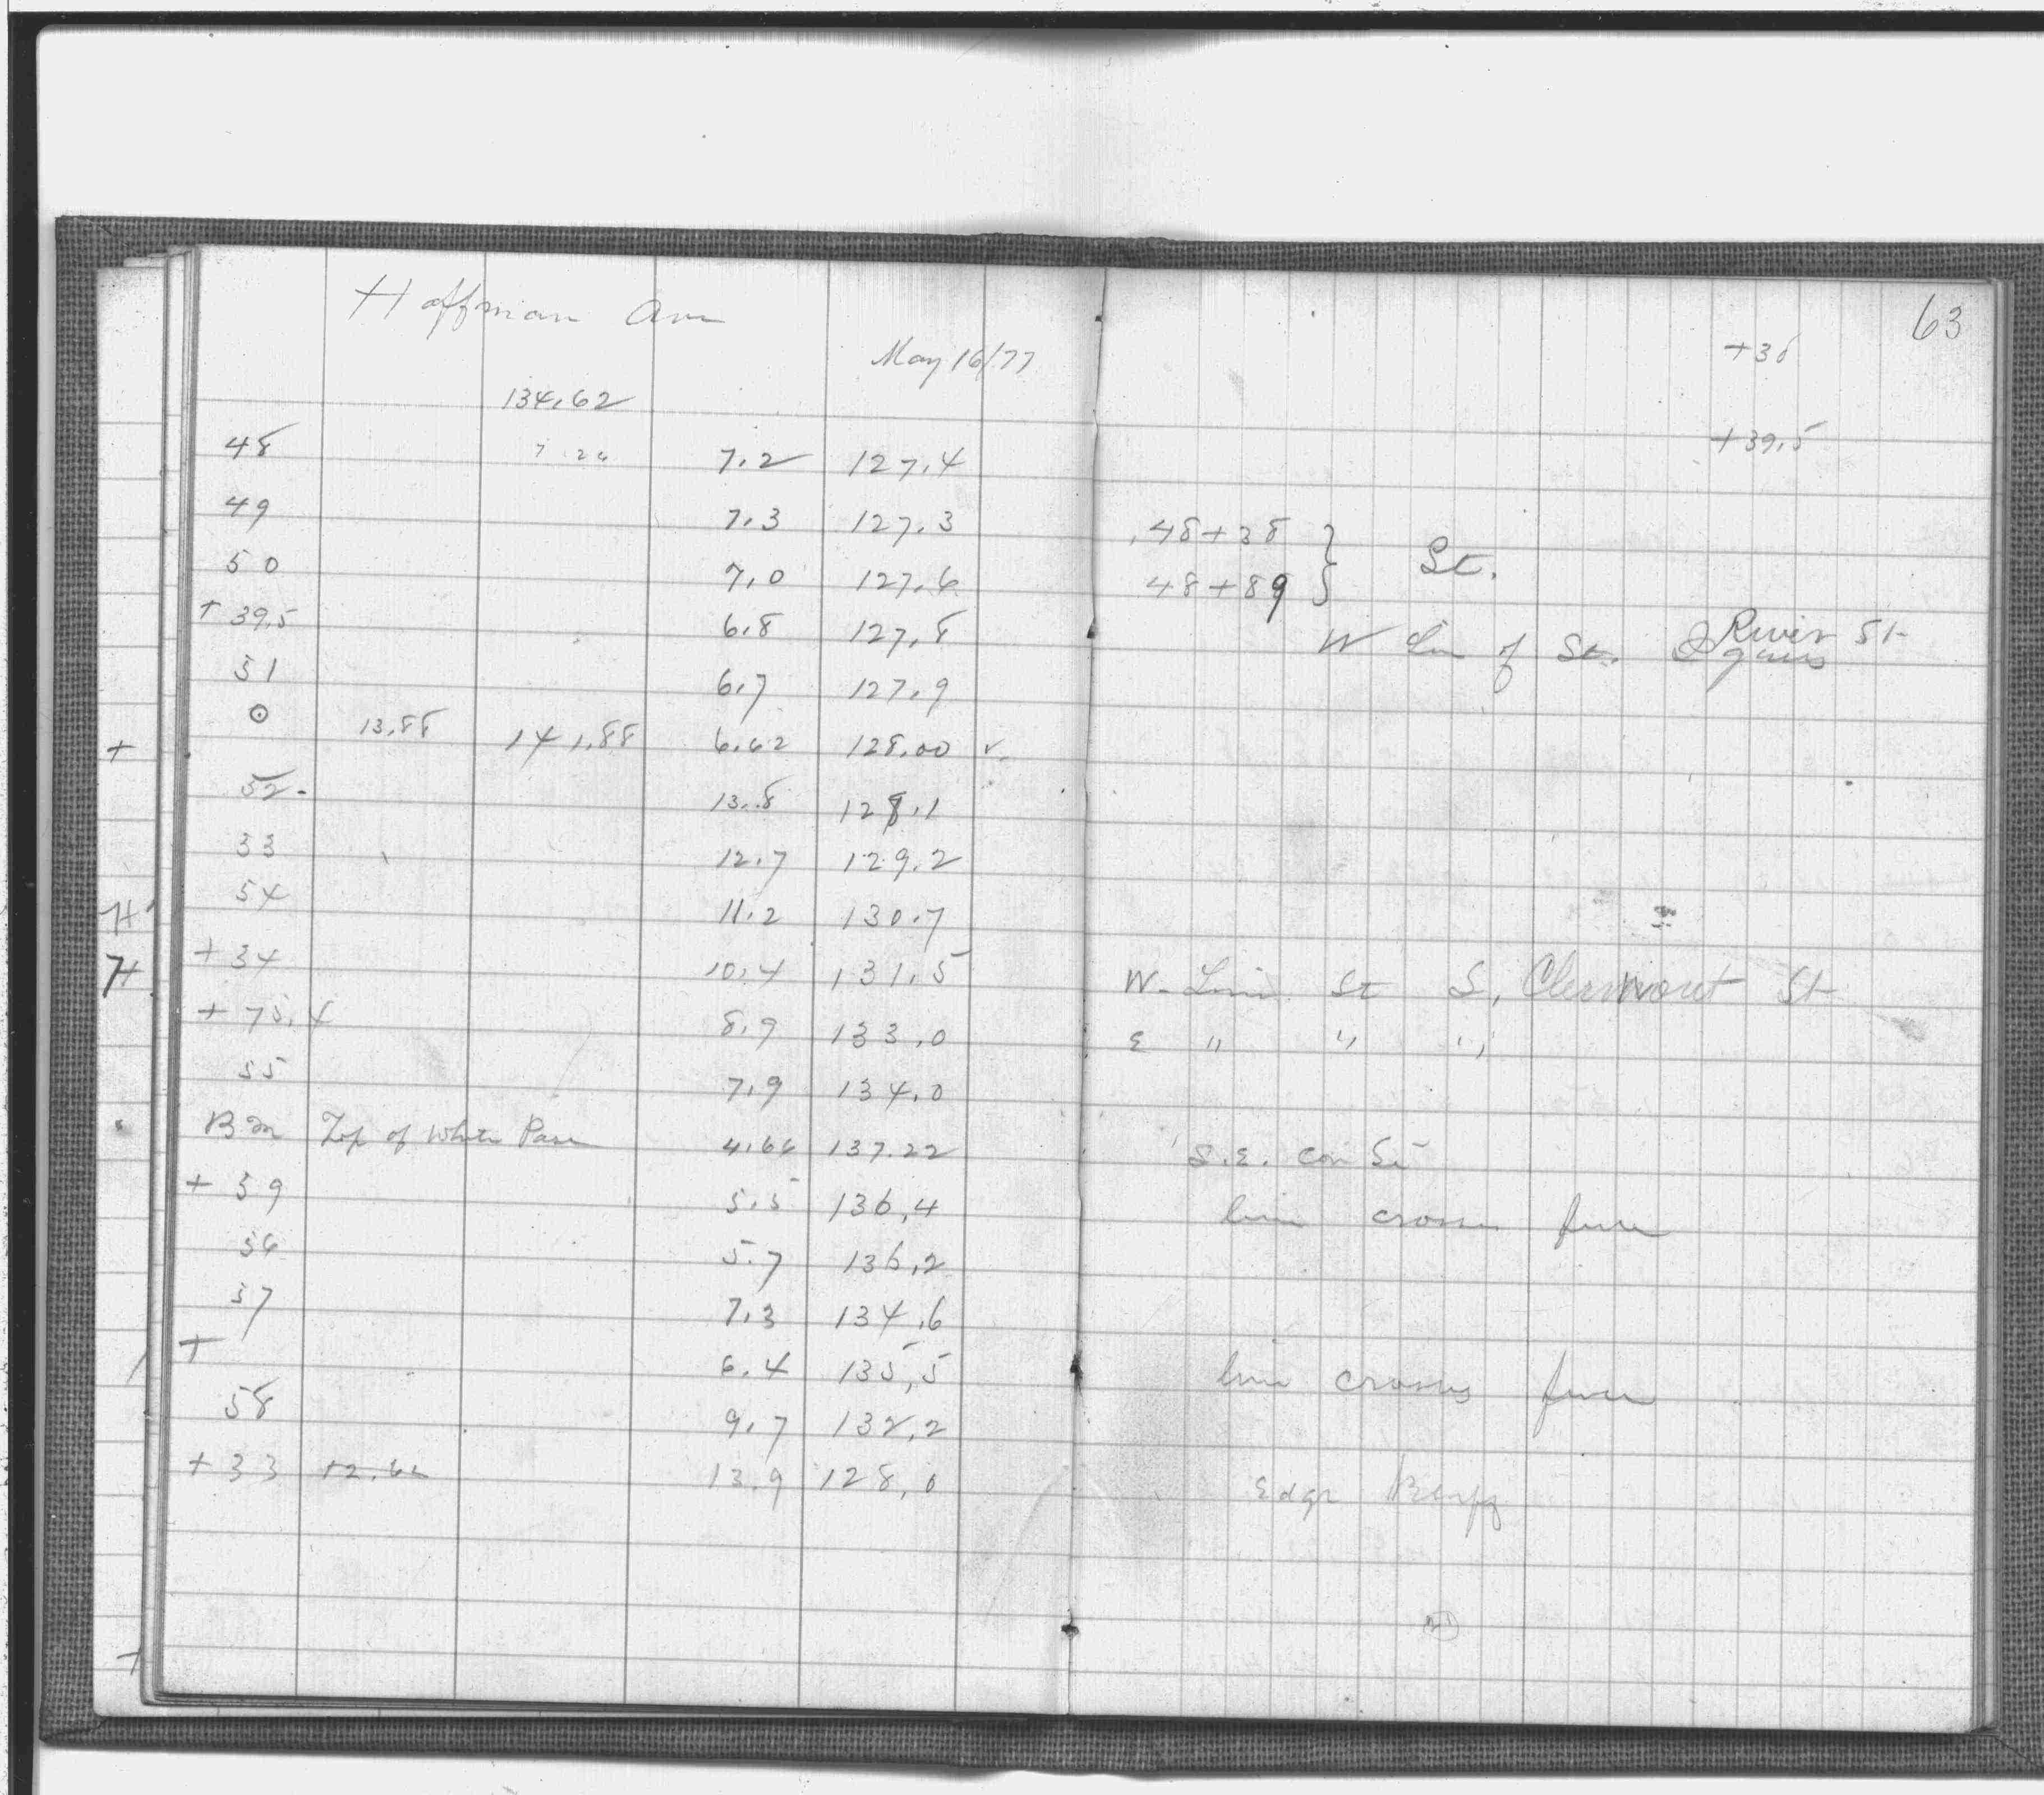 Hoffman Ave
May 16/77
134.62
48 7.26 7.2 127.4
49 7.3 127.3
50 7.0 127.6
+ 39.5 6.8 127.8
51 6.7 127.9
⊙ 13.88 141.88 6.62 128.00 v.
52. 13.8 128.1
53 12.7 129.2
54 11.2 130.7
+ 34 10.4 131.5
+ 75.4 8.9 133.0
55 7.9 134.0
BM Top of White 4.66 137.22
+ 59 5.5 136.4
56 5.7 136.2
57 7.3 134.6
+ 6.4 135.5
58 9.7 132.2
+ 33 12.62 13.9 128.0
63
+38
+39.5
48+38 }
48+89 } St.
W Line of St. River St
W. Line St S, Clermont St
E " " "
S.E. Cor St
line crosses fence
line crosses fence
Edge Bluff